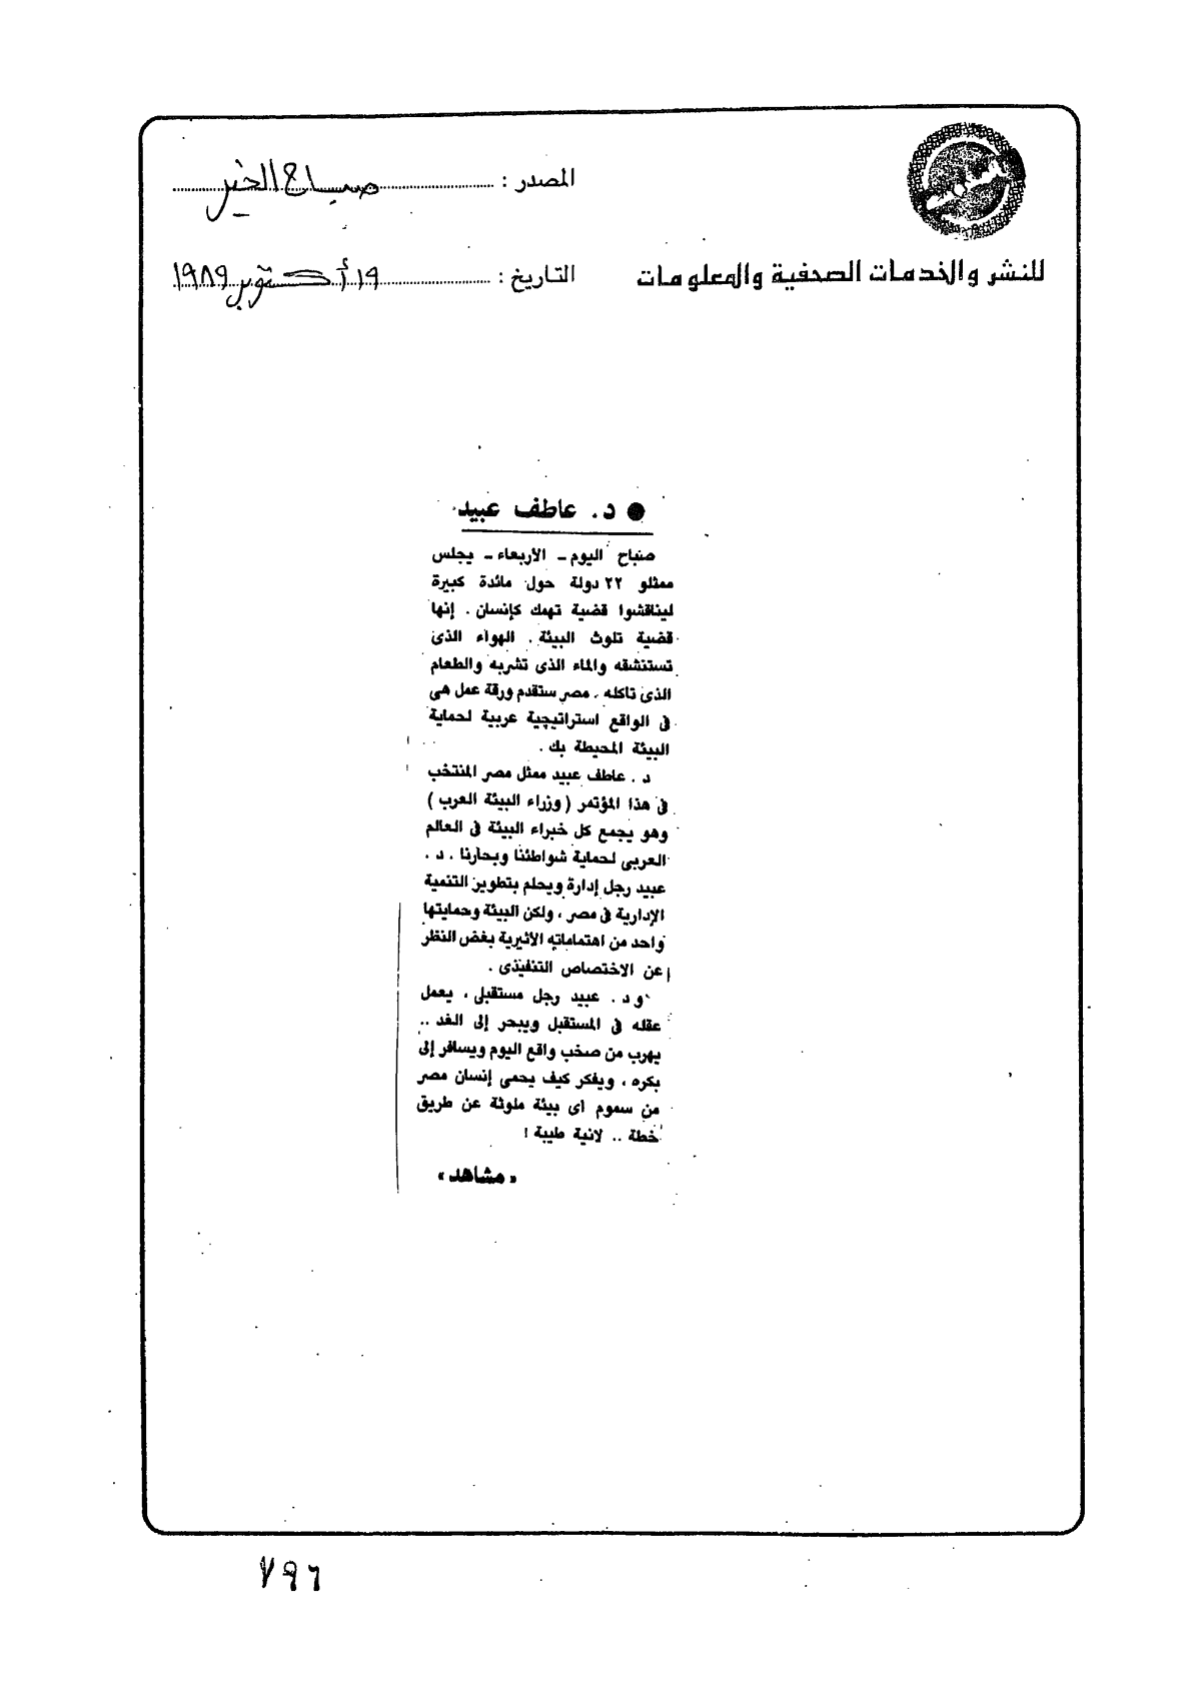 المصدر : صباح الخير
للنشر والخدمات الصحفية والمعلومات
التاريخ : ١٩ أكتوبر ١٩٨٩
● د. عاطف عبيد
صباح اليوم - الأربعاء - يجلس
ممثلو ٢٢ دولة حول مائدة كبيرة
ليناقشوا قضية تهمك كإنسان . إنها
قضية تلوث البيئة . الهواء الذى
تستنشقه والماء الذى تشربه والطعام
الذى تاكله . مصر ستقدم ورقة عمل هى
فى الواقع استراتيجية عربية لحماية
البيئة المحيطة بك .
د . عاطف عبيد ممثل مصر المنتخب
فى هذا المؤتمر ( وزراء البيئة العرب )
وهو يجمع كل خبراء البيئة فى العالم
العربى لحماية شواطئنا وبحارنا . د .
عبيد رجل إدارة ويحلم بتطوير التنمية
الإدارية فى مصر ، ولكن البيئة وحمايتها
واحد من اهتماماته الأثيرية بغض النظر
عن الاختصاص التنفيذى .
و د . عبيد رجل مستقبلى ، يعمل
عقله فى المستقبل ويبحر إلى الغد ..
يهرب من صخب واقع اليوم ويسافر إلى
بكره ، ويفكر كيف يحمى إنسان مصر
من سموم اى بيئة ملوثة عن طريق
خطة .. لانية طيبة !
« مشاهد »
٧٩٦